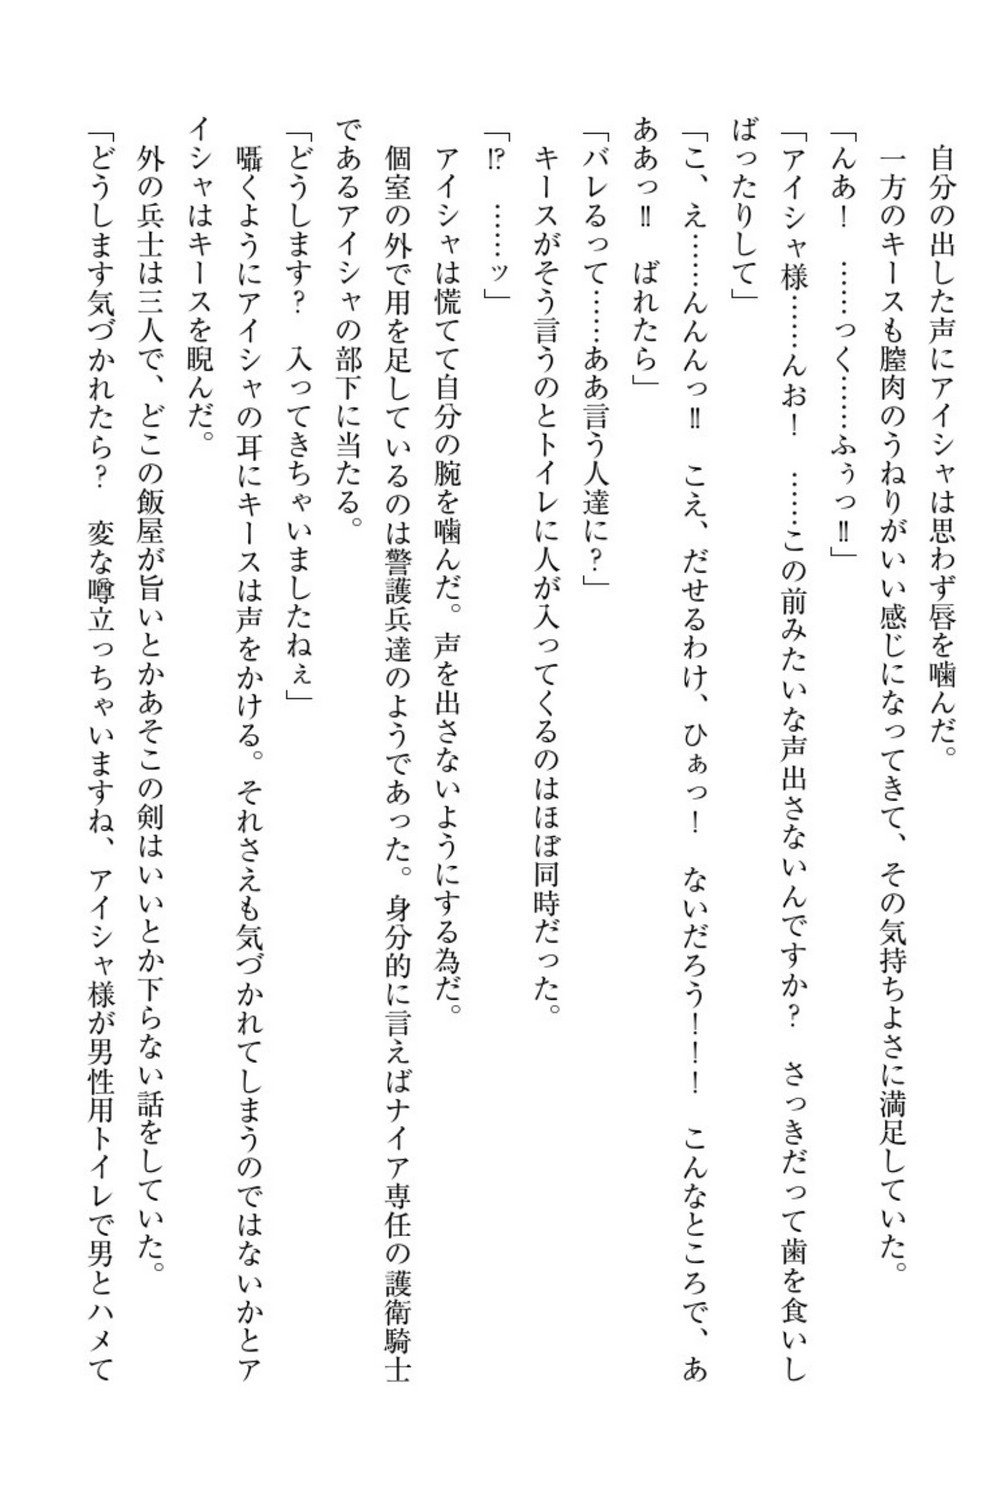 自分の出した声にアイシャは思わず唇を噛んだ。
　一方のキースも膣肉のうねりがいい感じになってきて、その気持ちよさに満足していた。
「んあ！　……っく……ふぅっ‼」
「アイシャ様……んお！　……この前みたいな声出さないんですか？　さっきだって歯を食いし
ばったりして」
「こ、え……んんんっ‼　こえ、だせるわけ、ひぁっ！　ないだろう！！！　こんなところで、あ
ああっ‼　ばれたら」
「バレるって……ああ言う人達に？」
　キースがそう言うのとトイレに人が入ってくるのはほぼ同時だった。
「⁉　……ッ」
　アイシャは慌てて自分の腕を噛んだ。声を出さないようにする為だ。
　個室の外で用を足しているのは警護兵達のようであった。身分的に言えばナイア専任の護衛騎士
であるアイシャの部下に当たる。
「どうします？　入ってきちゃいましたねぇ」
　囁くようにアイシャの耳にキースは声をかける。それさえも気づかれてしまうのではないかとア
イシャはキースを睨んだ。
　外の兵士は三人で、どこの飯屋が旨いとかあそこの剣はいいとか下らない話をしていた。
「どうします気づかれたら？　変な噂立っちゃいますね、アイシャ様が男性用トイレで男とハメて